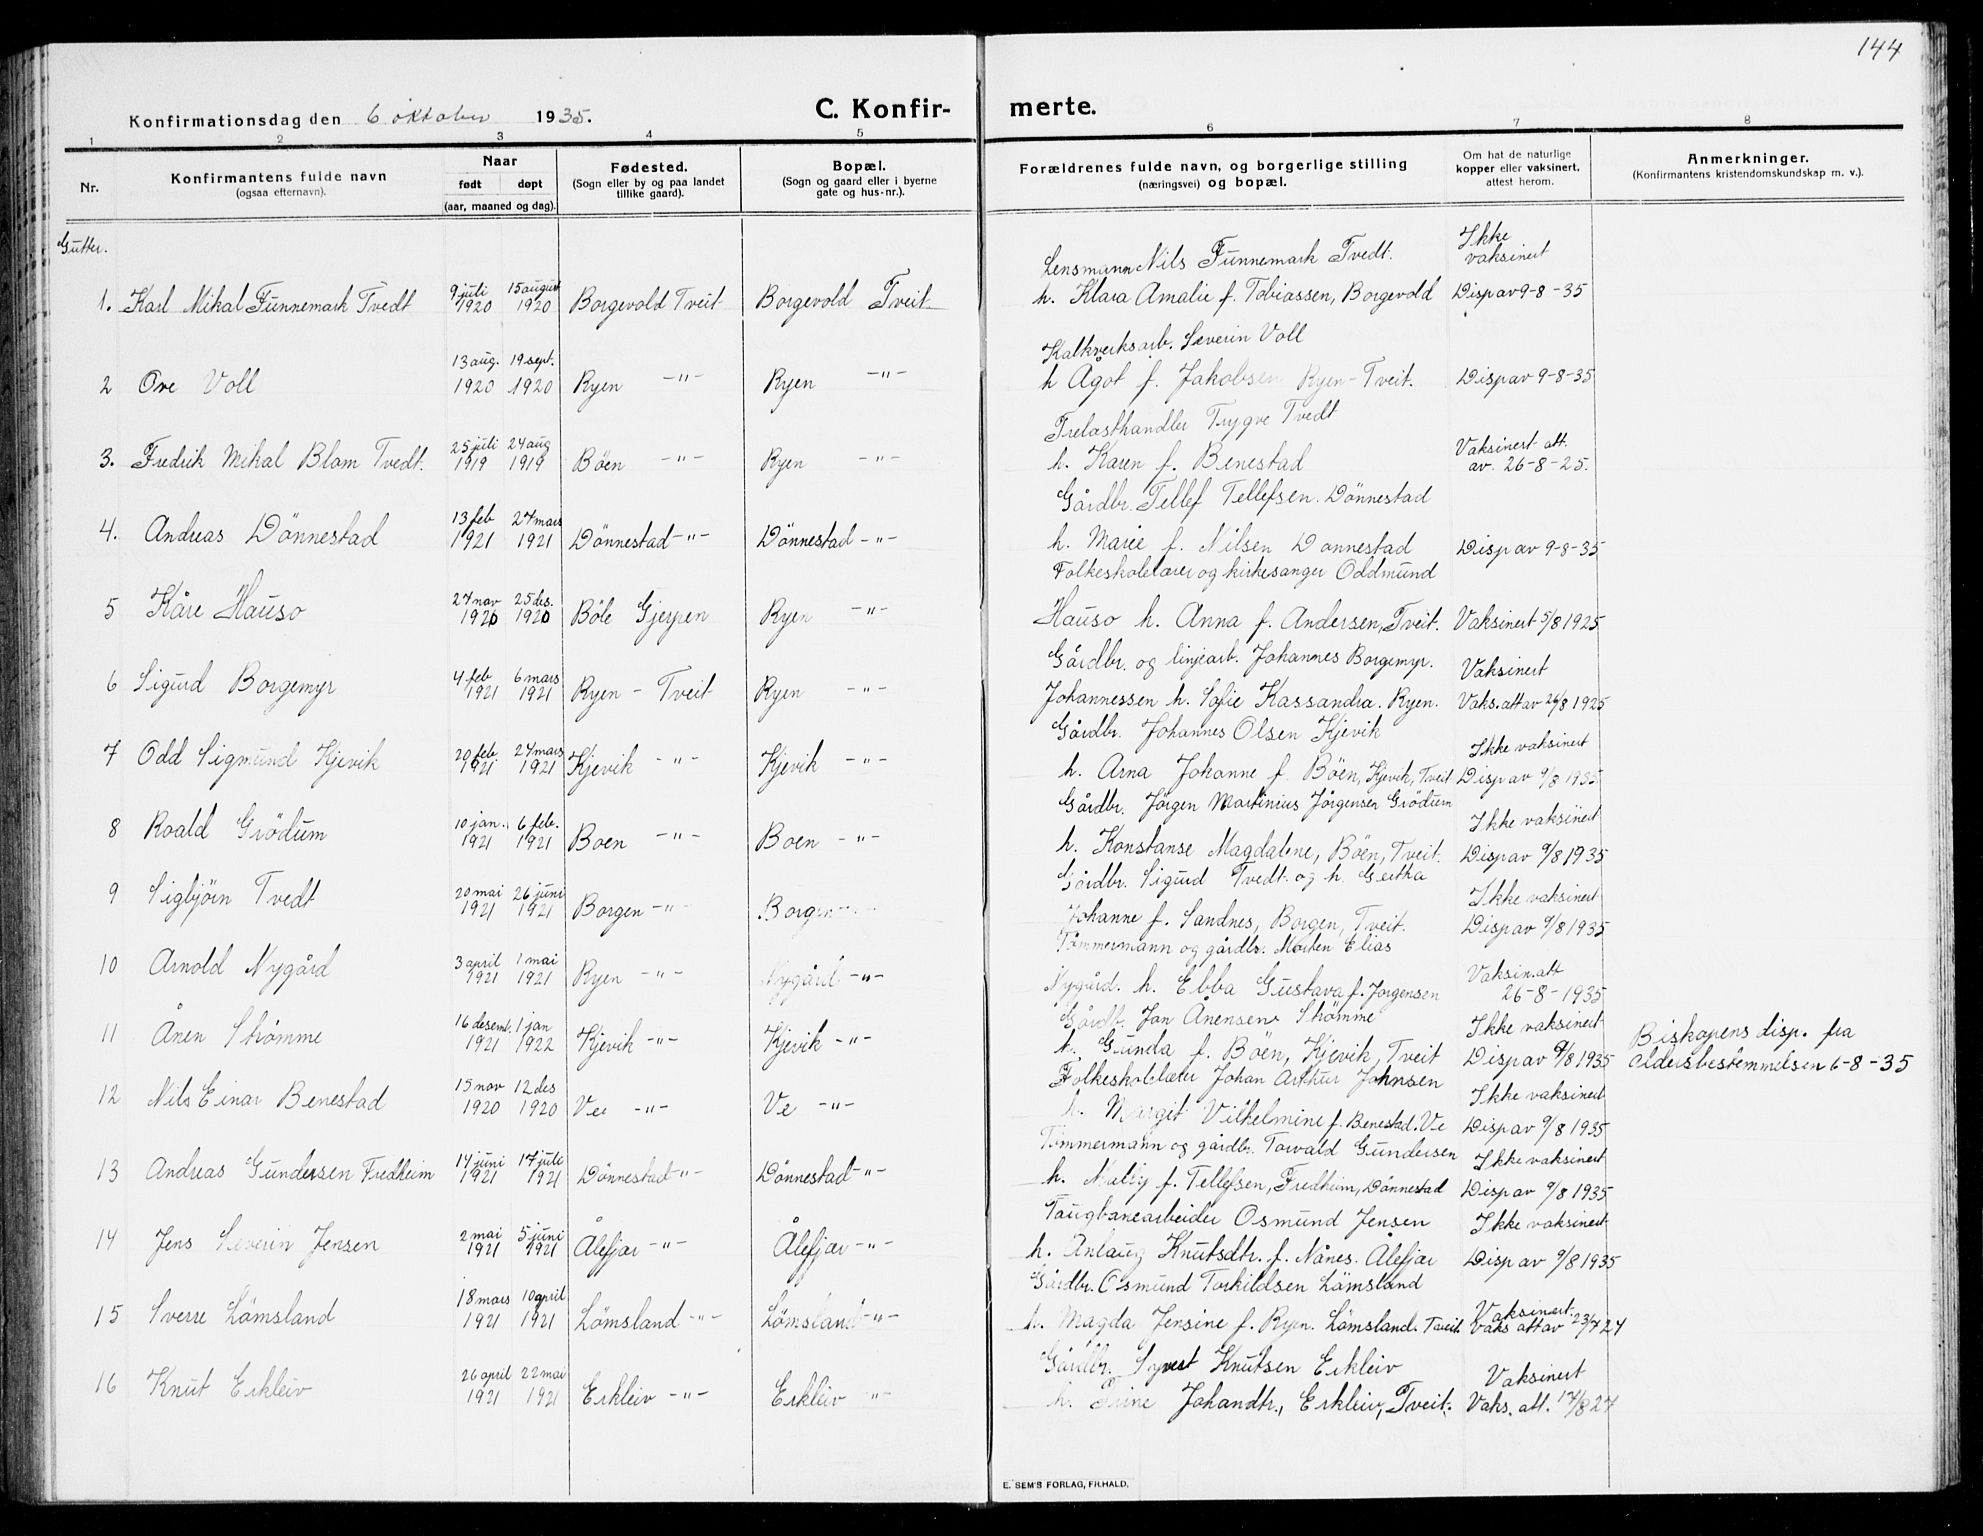 144
Konfirmationsdag den 6 oktober 1935.
C. Konfir- merte.
1 2 3 4 5 6 7 8
Nr.
Konfirmantens fulde navn
(ogsaa efternavn).
Naar
født døpt
(aar, maaned og dag).
Fødested.
(Sogn eller by og paa landet
tillike gaard).
Bopæl.
(Sogn og gaard eller i byerne
gate og hus-nr.).
Forældrenes fulde navn, og borgerlige stilling
(næringsvei) og bopæl.
Om hat de naturlige
kopper eller vaksinert,
attest herom.
Anmerkninger.
(Konfirmantens kristendomskundskap m. v.).
Gutter.
Lensmann Nils Funnemark Tvedt. Ikke vaksinert
1. Karl Mikal Funnemark Tvedt 9 juli 1920 15 august 1920 Borgevold Tveit Borgevold Tveit h. Klara Amalie f. Tobiassen, Borgevold Disp av 9-8-35
Kalkverksarb. Severin Voll
2 Ove Voll 13 aug. 1920 19 sept. 1920 Ryen -"- Ryen -"- h Ågot f. Jakobsen Ryen-Tveit. Disp av 9-8-35
Trelasthandler Trygve Tvedt
3. Fredrik Mikal Blom Tvedt. 25 juli 1919 24 aug 1919 Böen -"- Ryen -"- h. Karen f. Benestad Vaksinert att. av. 26-8-25.
Gårdbr. Tellef Tellefsen. Dönnestad
4. Andreas Dönnestad 13 feb 1921 27 mars 1921 Dönnestad -"- Dönnestad -"- h. Marie f. Nilsen Dønnestad Disp av 9-8-35
Folkeskolelærer og kirkesanger Oddmund
5 Kåre Hauso 27 nov 1920 25 des. 1920 Böle Gjerpen Ryen -"- Hauso h. Anna f. Andersen, Tveit. Vaksinert 5/8 1925
Gårdbr. og linjearb. Johannes Borgemyr. Vaksinert
6 Sigurd Borgemyr 4 feb 1921 6 mars 1921 Ryen - Tveit Ryen -"- Johannessen h. Sofie Kassandra. Ryen. Vaks. att av 26/8 1925
Gårdbr. Johannes Olsen Kjevik Ikke vaksinert
7 Odd Sigmund Kjevik 20 feb 1921 27 mars 1921 Kjevik -"- Kjevik -"- h. Arna Johanne f. Böen, Kjevik, Tveit Disp av 9/8 1935
Gårdbr. Jörgen Martinius Jörgensen Grödum Ikke vaksinert
8 Roald Grödum 10 jan. 1921 6 feb. 1921 Boen -"- Boen -"- h. Konstanse Magdalene, Böen, Tveit. Disp av 9/8 1935
Gårdbr. Sigurd Tvedt og h. Gertha Ikke vaksinert
9 Sigbjörn Tvedt 20 mai 1921 26 juni 1921 Borgen -"- Borgen -"- Johanne f. Sandnes, Borgen, Tveit. Disp av 9/8 1935
Tömmermann og gårdbr. Morten Elias Vaksin. att
10 Arnold Nygård 3 april 1921 1 mai 1921 Ryen -"- Nygård -"- Nygård. h. Ebba Gustava f. Jorgensen 26-8-1935
Gårdb. Jan Ånensen Strömme Ikke vaksinert Biskopens disp. fra
11 Ånen Strömme 16 desemb. 1921 1 jan 1922 Kjevik -"- Kjevik -"- h. Gunda f. Böen, Kjevik, Tveit Disp av 9/8 1935 aldersbestemmelsen 6-8-35
Folkeskolelærer Johan Arthur Johnsen Ikke vaksinert
12 Nils Einar Benestad 15 nov 1920 12 des 1920 Ve -"- Ve -"- h. Margit Vilhelmine f. Benestad. Ve Disp av 9/8 1935
Tömmermann og gårdbr. Torvald Gundersen Ikke vaksinert
13 Andreas Gundersen Fredheim 14 juni 1921 17 juli 1921 Dönnestad -"- Dönnestad -"- h. Mally f. Tellefsen, Fredheim, Dönnestad Disp av 9/8 1935
Taugbanearbeider Osmund Jensen Ikke vaksinert
14 Jens Severin Jensen 2 mai 1921 5 juni 1921 Ålefjær -"- Ålefjær -"- h. Anlaug Knutsdtr. f. Nånes. Ålefjær Disp av 9/8 1935
Gårdbr. Osmund Torkildsen Lömsland Vaksinert.
15 Sverre Lömsland 18 mars 1921 10 april 1921 Lömsland -"- Lömsland -"- h. Magda Jensine f. Ryen. Lömsland. Tveit. Vaks att av 23/4 24
Gårdbr. Syvert Knutsen Erkleiv Vaksinert
16 Knut Erkleiv 26 april 1921 22 mai 1921 Erkleiv -"- Erkleiv -"- h. Trine Johandtr., Erkleiv, Tveit. Vaks. att. 17/8 27
E. SEM'S FORLAG, FR.HALD.